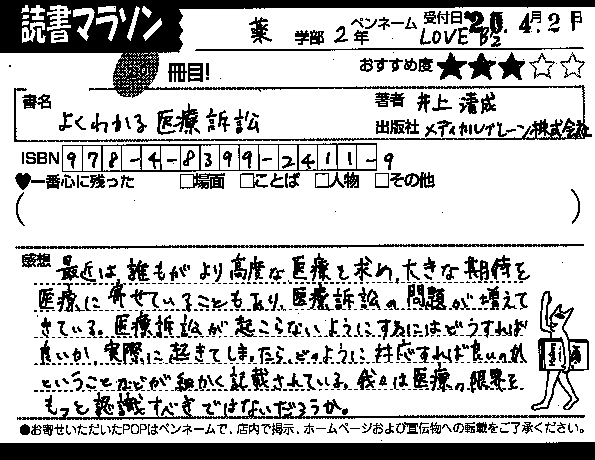 読書マラソン
薬 学部 2年
ペンネーム LOVE B'z
受付日 4月2日
冊目!
おすすめ度 ★★★☆☆
書名 よくわかる医療訴訟
著者 井上清成
出版社 メディカルグレーン株式会社
ISBN 978-4-8399-2411-9
♥一番心に残った □場面 □ことば □人物 □その他
感想 最近は、誰もがより高度な医療を求め、大きな期待を
医療に寄せていることもあり、医療訴訟の問題が増えて
きている。医療訴訟が起こらないようにするにはどうすれば
良いか、実際に起きてしまったら、どのように対応すれば良いのか
ということなどが細かく記載されている。我々は医療の限界を
もっと認識すべきではないだろうか。
●お寄せいただいたPOPはペンネームで、店内で掲示、ホームページおよび宣伝物への転載をご了承ください。